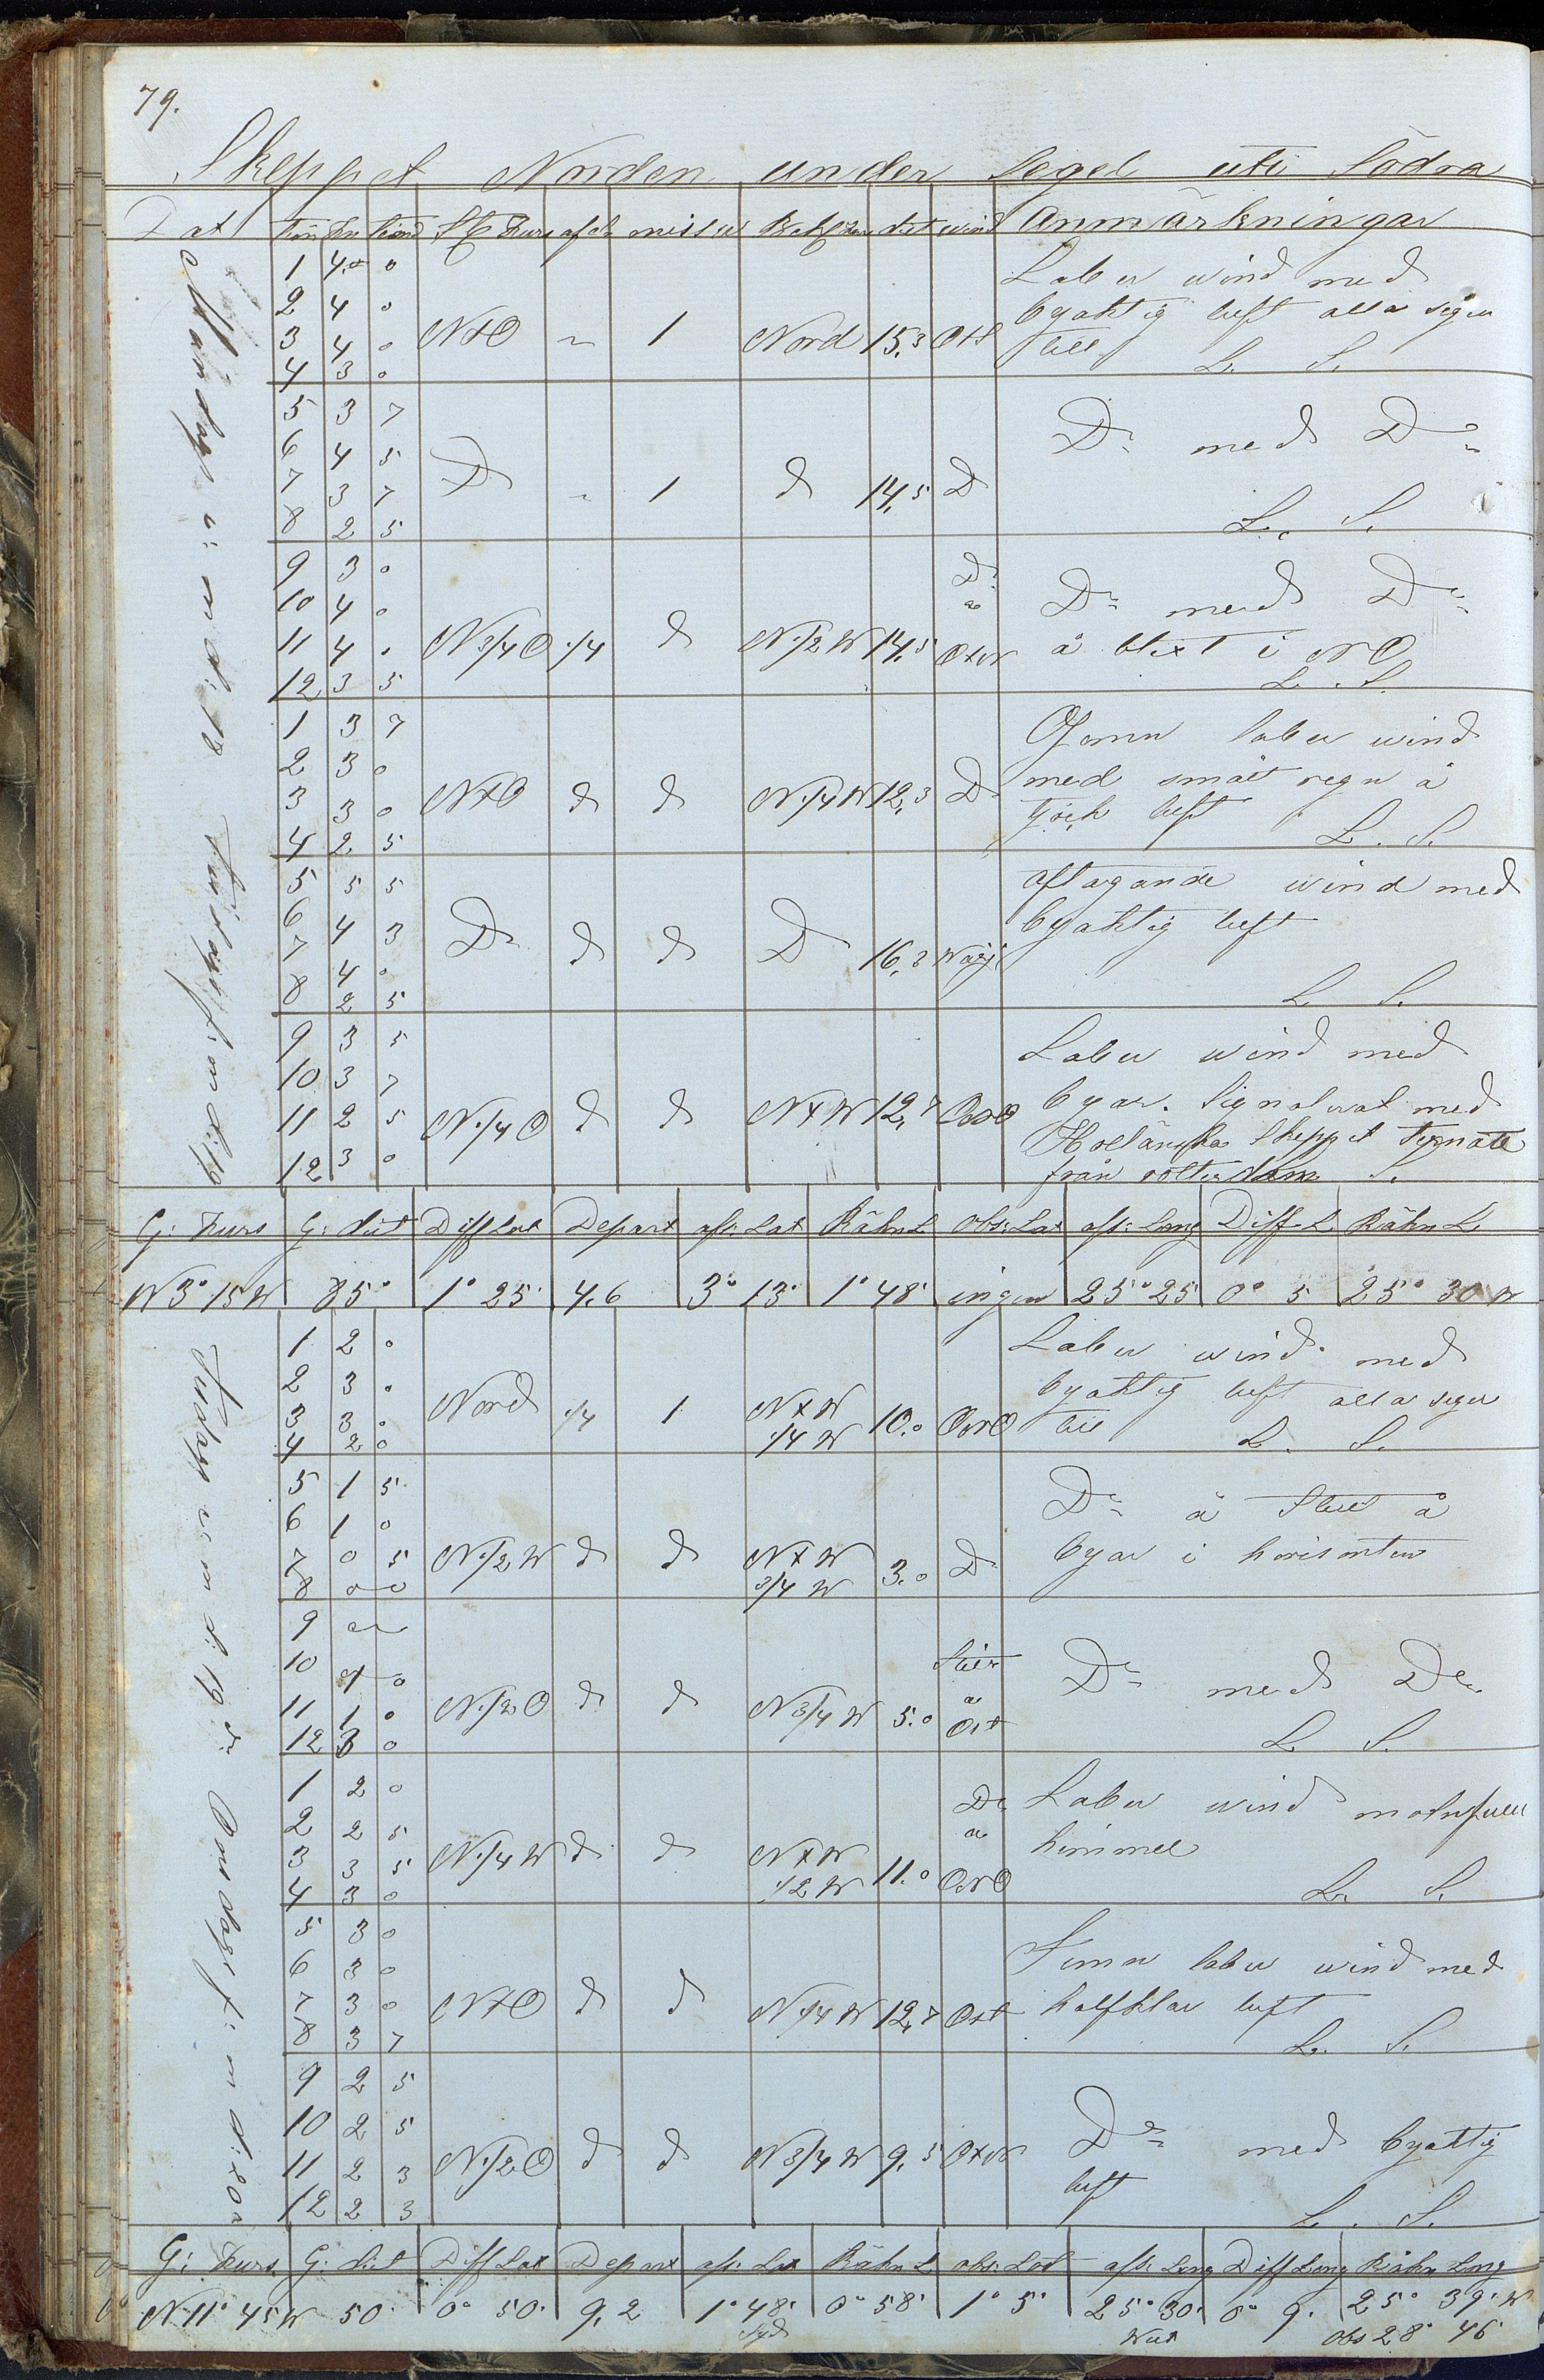 79.
Skeppet Norden under Segel uti Södra
Dat Tim Kn St Kurs afdr missw Beh Kurs dist wind Anmärkningar
Måndag e: m d: 18 Tisdag f: m d: 19
1 4 0 Laber wind med
2 4 0 byaktig luft alla segel
3 4 0 NtO ~ 1 Nord 15,3 OtS till
4 3 0 L. S.
5 3 7 Do med Do
6 4 5
7 3 7 D ~ 1 d 14,5 D
8 2 5 L. S.
9 3 0 Do
10 4 0 a Do med Do
11 4 0 N 3/4 O 1/4 d N 1/2 W 14,5 OtN å blixt i NO
12 3 5 L. S.
1 3 7 Jemn laber wind
2 3 0 med smått regn å
3 3 0 NtO d d N 1/4 W 12,3 D tjock luft
4 2 5 L. S.
5 5 5 aftagande wind med
6 4 3 byaktig luft
7 4 0 D d d D 16,3
8 2 5 L S.
9 3 5 Laber wind med
10 3 7 byar. Signalerat med
11 2 5 N 1/4 O d d NtW 12,7 OSO Holländska Skeppet Ternate
12 3 0 från Rotterdam S.
G: Kurs G: dist Diff Lat Depart afs: Lat Räkn L obs: Lat afs: Long Diff L Räkn L.
N 3° 15 W 85° 1° 25' 4,6 3° 13' 1° 48' ingen 25° 25 0° 5 25° 30 W
Tisdag e m d: 19 Onsdag f: m d: 20
1 2 0 Laber wind med
2 3 0 byaktig luft alla segel
3 3 0 Nord 1/4 1 NtW 1/4 W 10,0 ONO till
4 2 0 L. S.
5 1 5 Do å Stilt å
6 1 0 byar i horisonten
7 0 5 N 1/2 W d d NtW 3/4 W 3,0 D
8 0 0
9
10 1 0 Do med Do
11 1 0 N 1/2 O d d N 3/4 W 5,0 a Ost
12 3 0 L. S.
1 2 0 Do Laber wind molnfull
2 2 5 a himmel
3 3 5 N 1/4 W d d NtW 1/2 W 11,0 ONO
4 3 0 L. S.
5 3 0 Jemn laber wind med
6 3 0 halfklar luft
7 3 0 NtO d d N 1/4 W 12,7 Ost
8 3 7 L. S.
9 2 5 Do med byaktig
10 2 5 luft
11 2 3 N 1/2 O d d N 3/4 W 9,5 OtN
12 2 3 L. S.
G: Kurs G: dist Diff Lat Depart afs: Lat Räkn L obs: Lat afs: Long Diff Long Räkn Long
N 11° 45 W 50' 0° 50' 9,2 1° 48' 0° 58' 1° 5' 25° 30' 0° 9' 25° 39' W
Syd West Obs 28° 46'